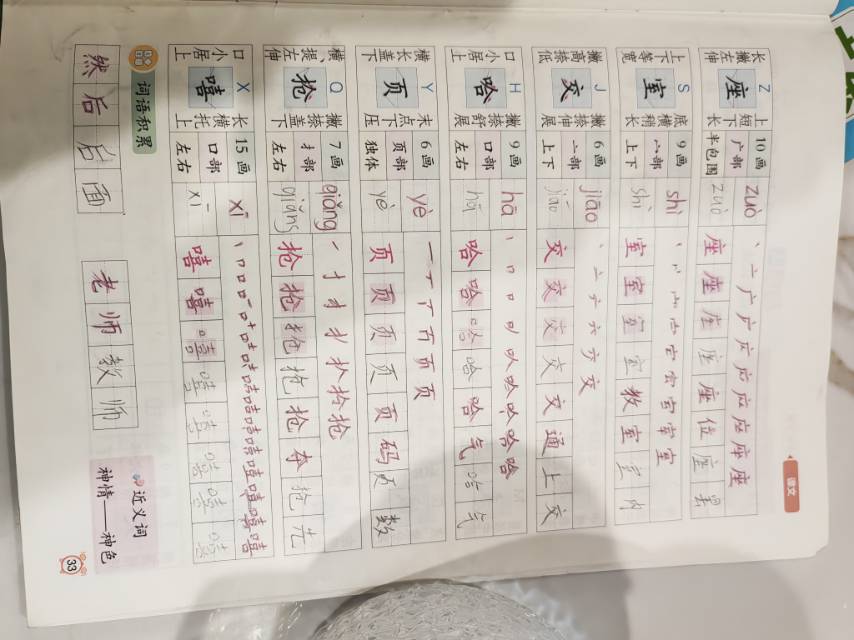 语文
Z 上短下长 10画 zuò 丶 亠 广 广 应 应 应 座 座 座
长撇左伸 座 广部 半包围 zuò 座 座 座 座 座 位 座
S 底横稍长 9画 shì 丶 丷 宀 宀 室 室 室 室 室
上下等宽 室 宀部 上下 shì 室 室 室 室 教 室 室 内
J 撇捺伸展 6画 jiāo 丶 亠 六 六 交 交
撇高捺低 交 亠部 上下 jiāo 交 交 交 交 交 通 上 交
H 撇捺舒展 9画 hā 丨 口 口 叭 哈 哈 哈 哈
口小居上 哈 口部 左右 hā 哈 哈 哈 哈 哈 气 哈 气
Y 末点下压 6画 yè 一 丆 丆 页 页 页
横长盖下 页 页部 独体 yè 页 页 页 页 页 码 页 数
Q 撇捺盖下 7画 qiǎng 一 扌 扌 扌 抢 抢 抢
横提左伸 抢 扌部 左右 qiǎng 抢 抢 抢 抢 抢 夺 抢 先
X 长横托上 15画 xī 丨 口 口 嘻 嘻
口小居上 嘻 口部 左右 xī 嘻 嘻 嘻 嘻 嘻 嘻 嘻 嘻
词语积累
然后 后面 老师 教师
近义词
神情——神色
33